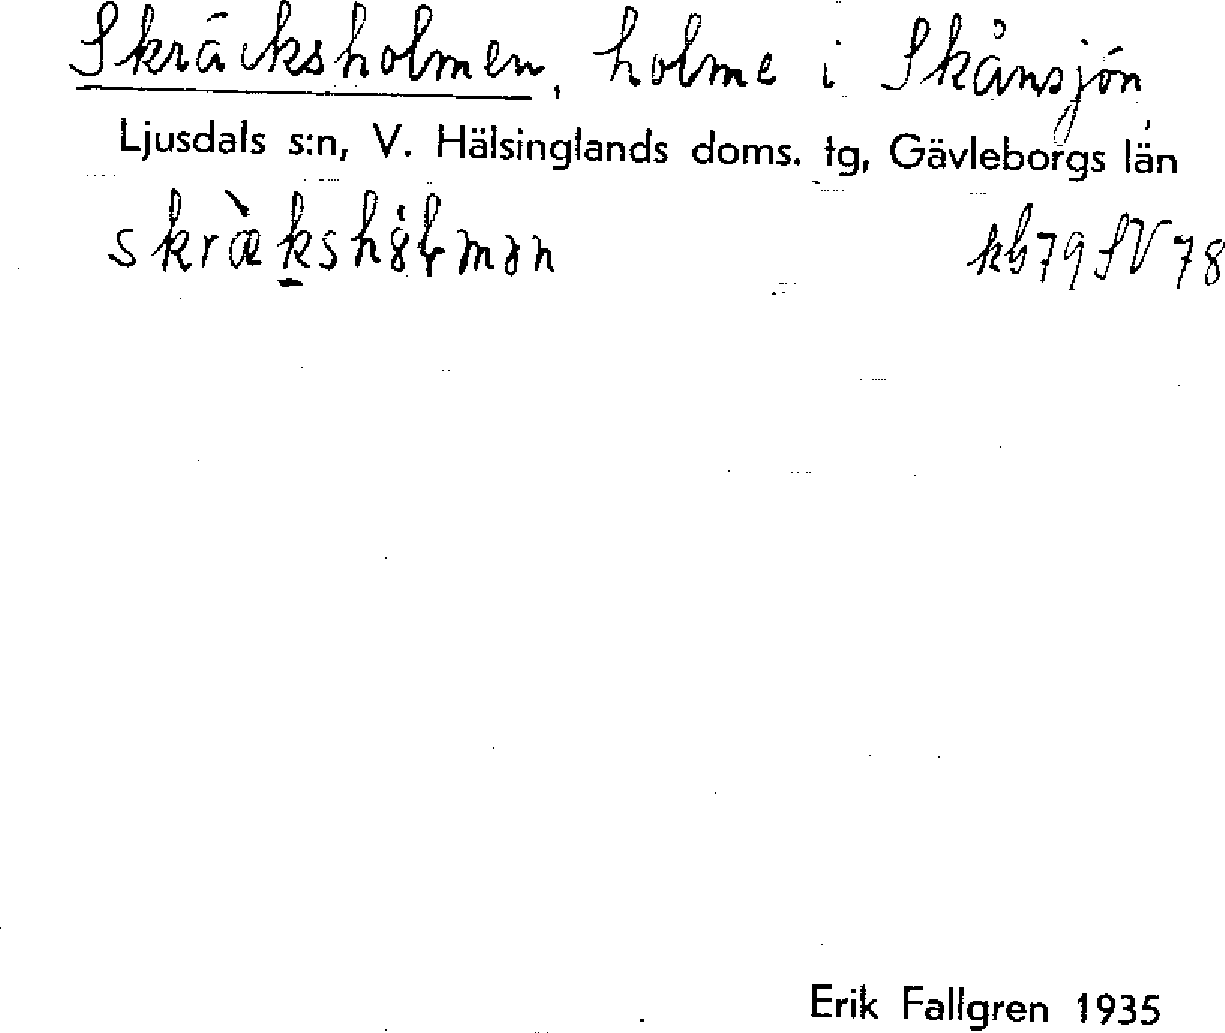 Skräcksholmen, holme i Skånsjön
Ljusdals s:n, V. Hälsinglands doms. tg, Gävleborgs län
kb79SV78
Erik Fallgren 1935